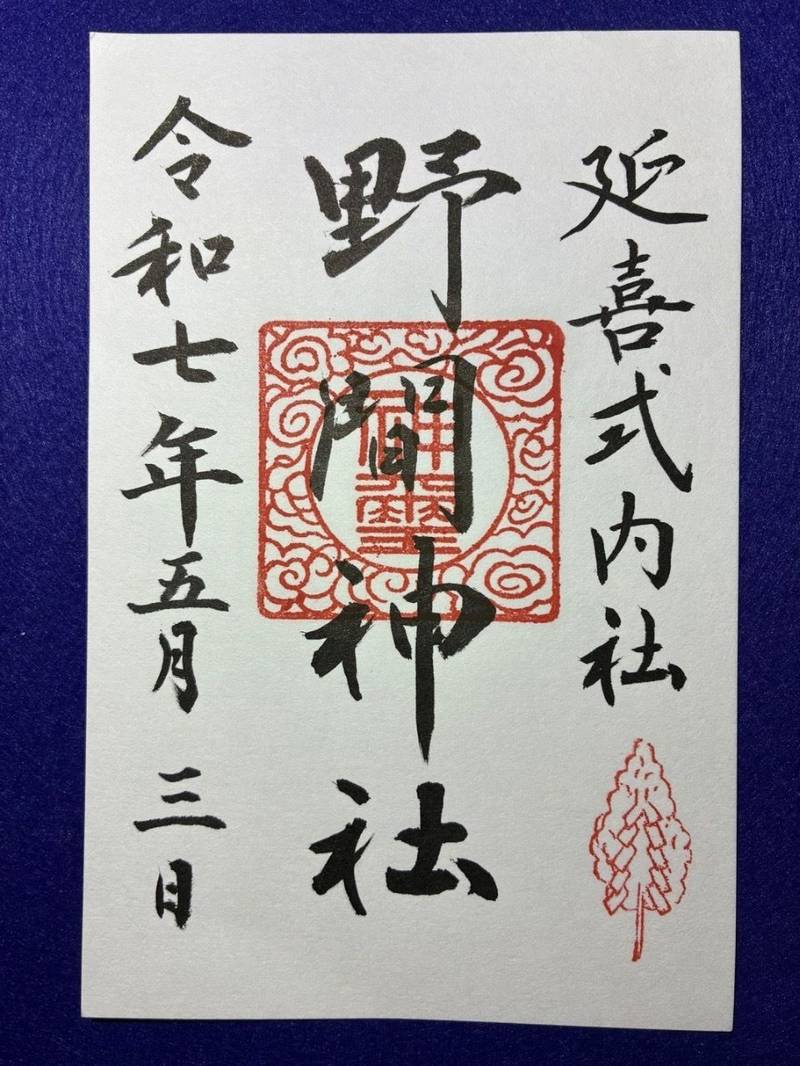 延喜式内社
野間神社
令和七年五月三日